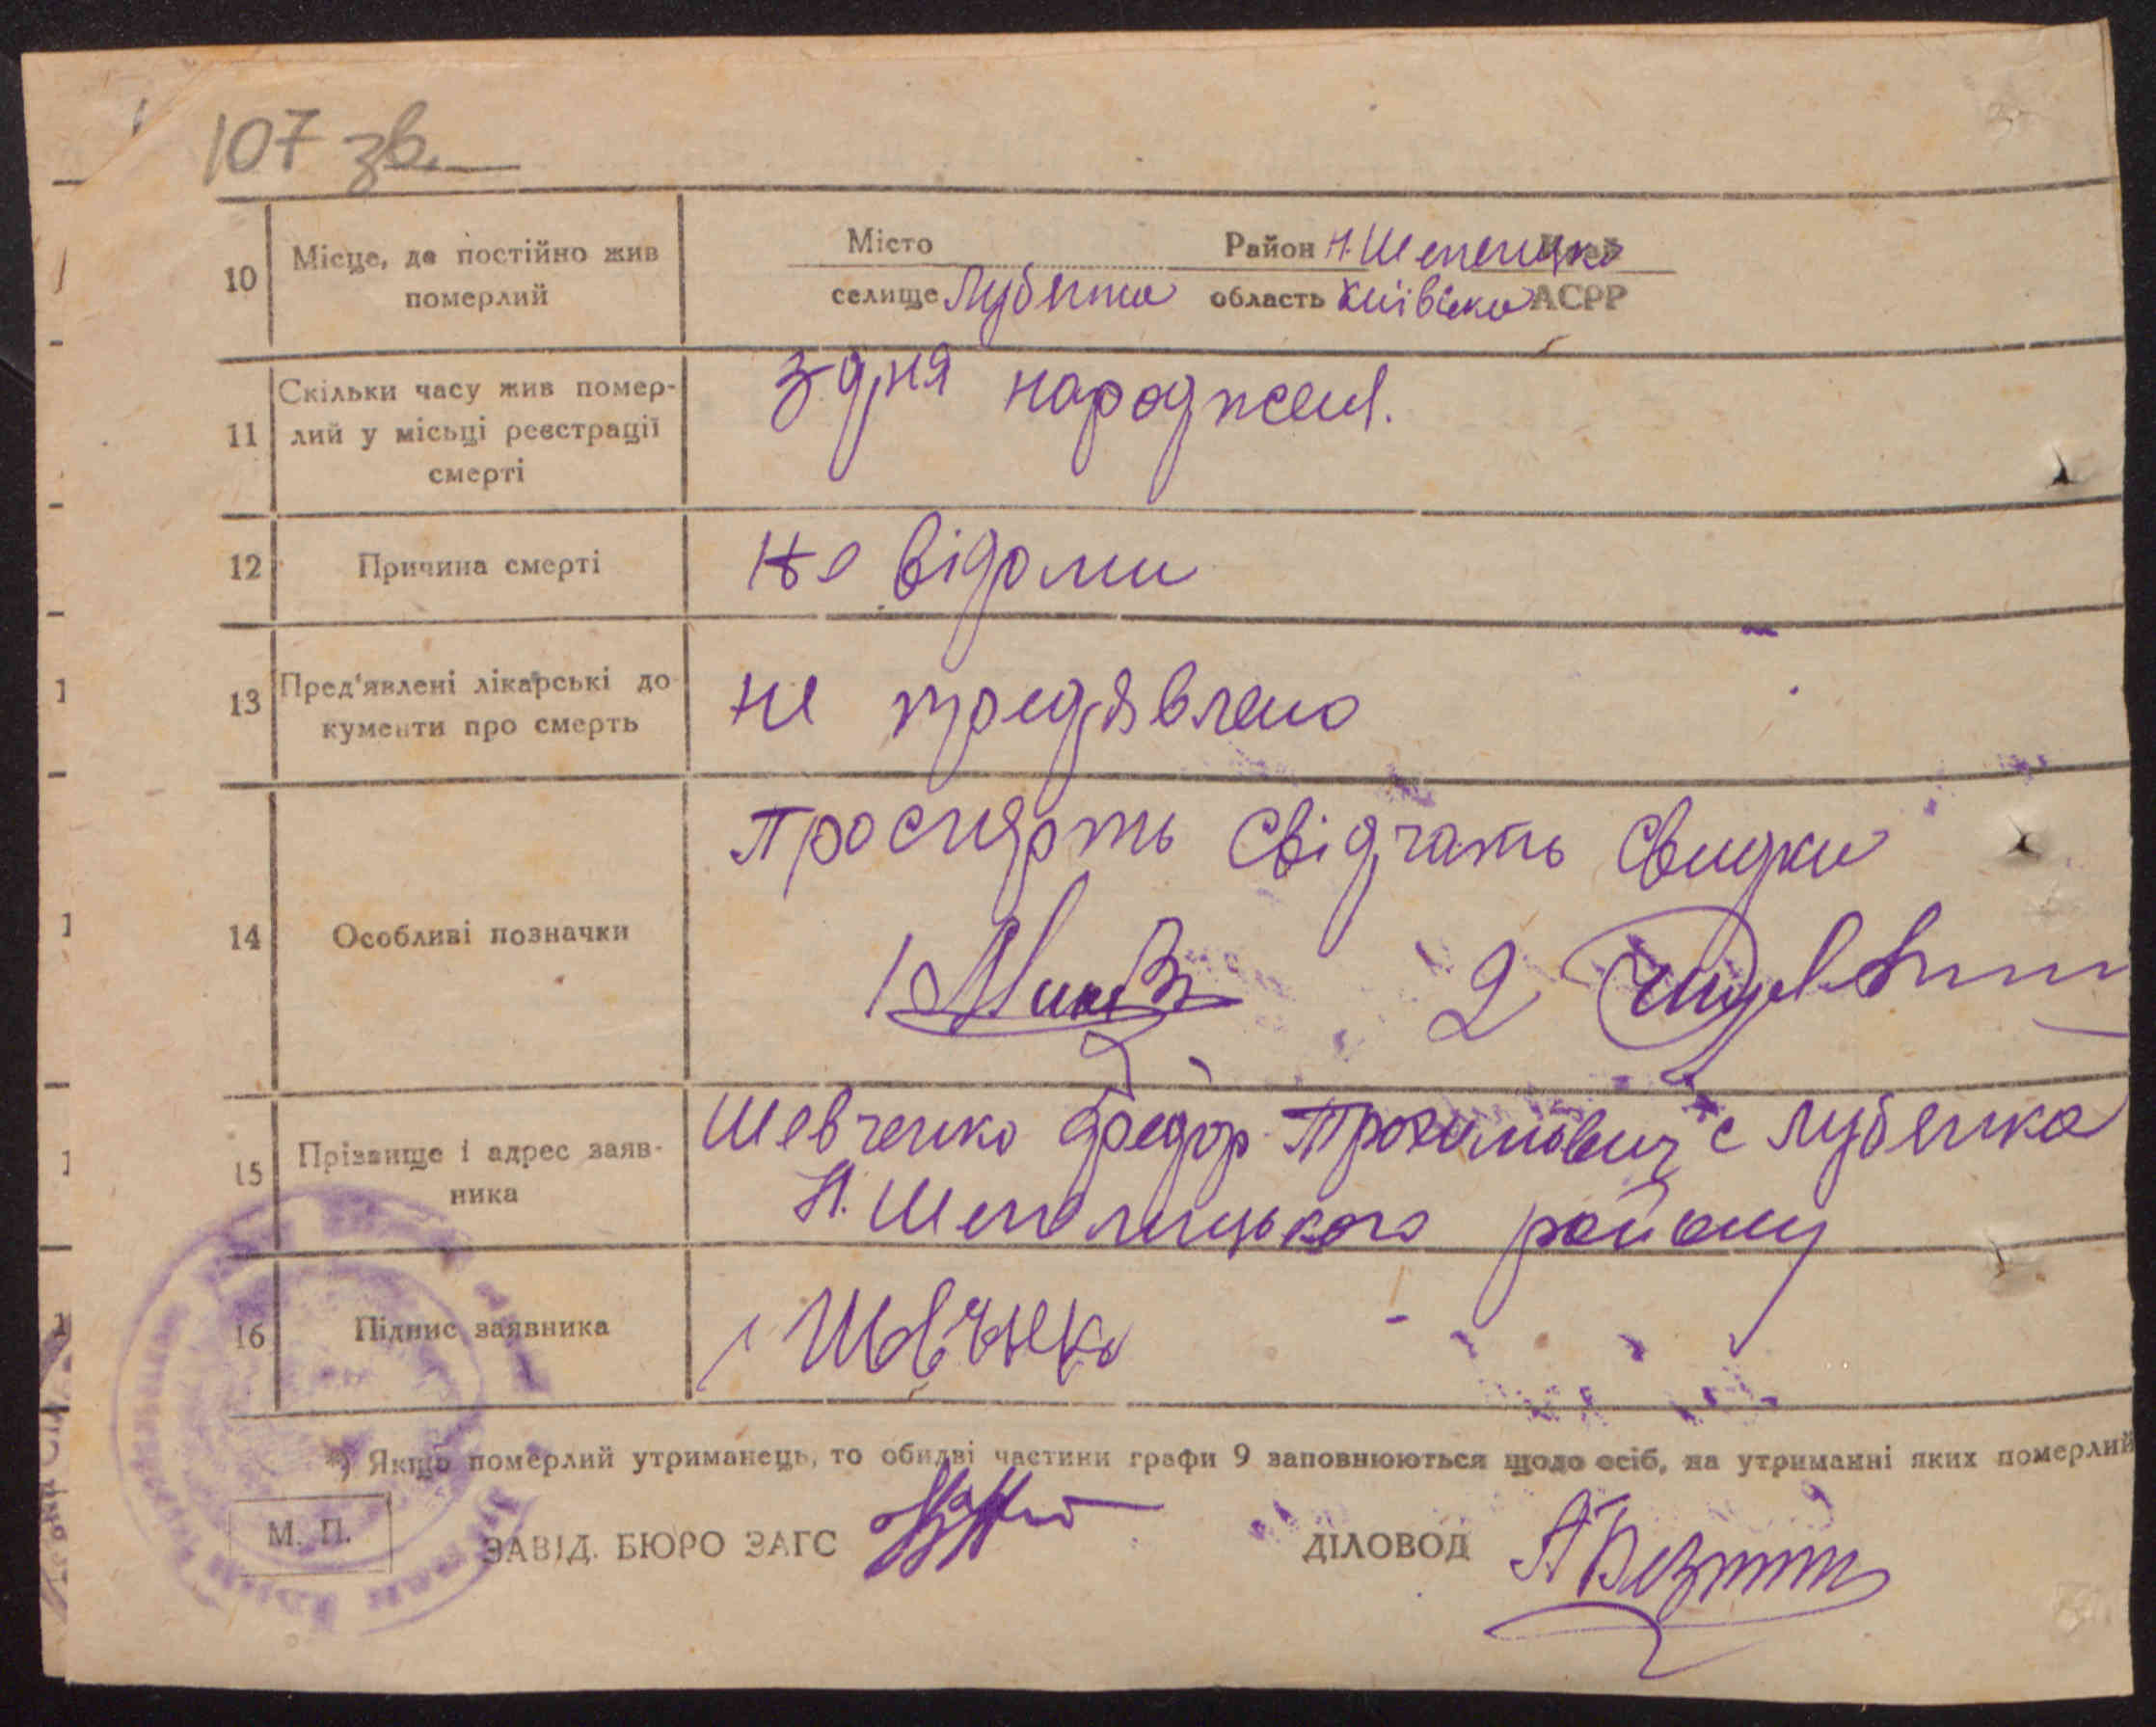 107 зв.
10 Місце, де постійно жив померлий
Місто Район Н. Шепелицко
селище Лубянка область Київска АСРР
11 Скільки часу жив помер-
лий у місьці реєстрації
смерті
з дня народжені.
12 Причина смерті
не відоми
13 Пред'явлені лікарські до
кументи про смерть
не предявлено
14 Особливі позначки
Про смерть свідчать свидки
1
2
15 Прізвище і адрес заяв-
ника
Шевченко Федор Трохимович с Лубянка
Н. Шепелицького району
16 Підпис заявника
Шевченко
*) Якщо померлий утриманець, то обидві частини графи 9 заповнюються щодо осіб, на утриманні яких померлий
М. П.
ЗАВІД. БЮРО ЗАГС
ДІЛОВОД